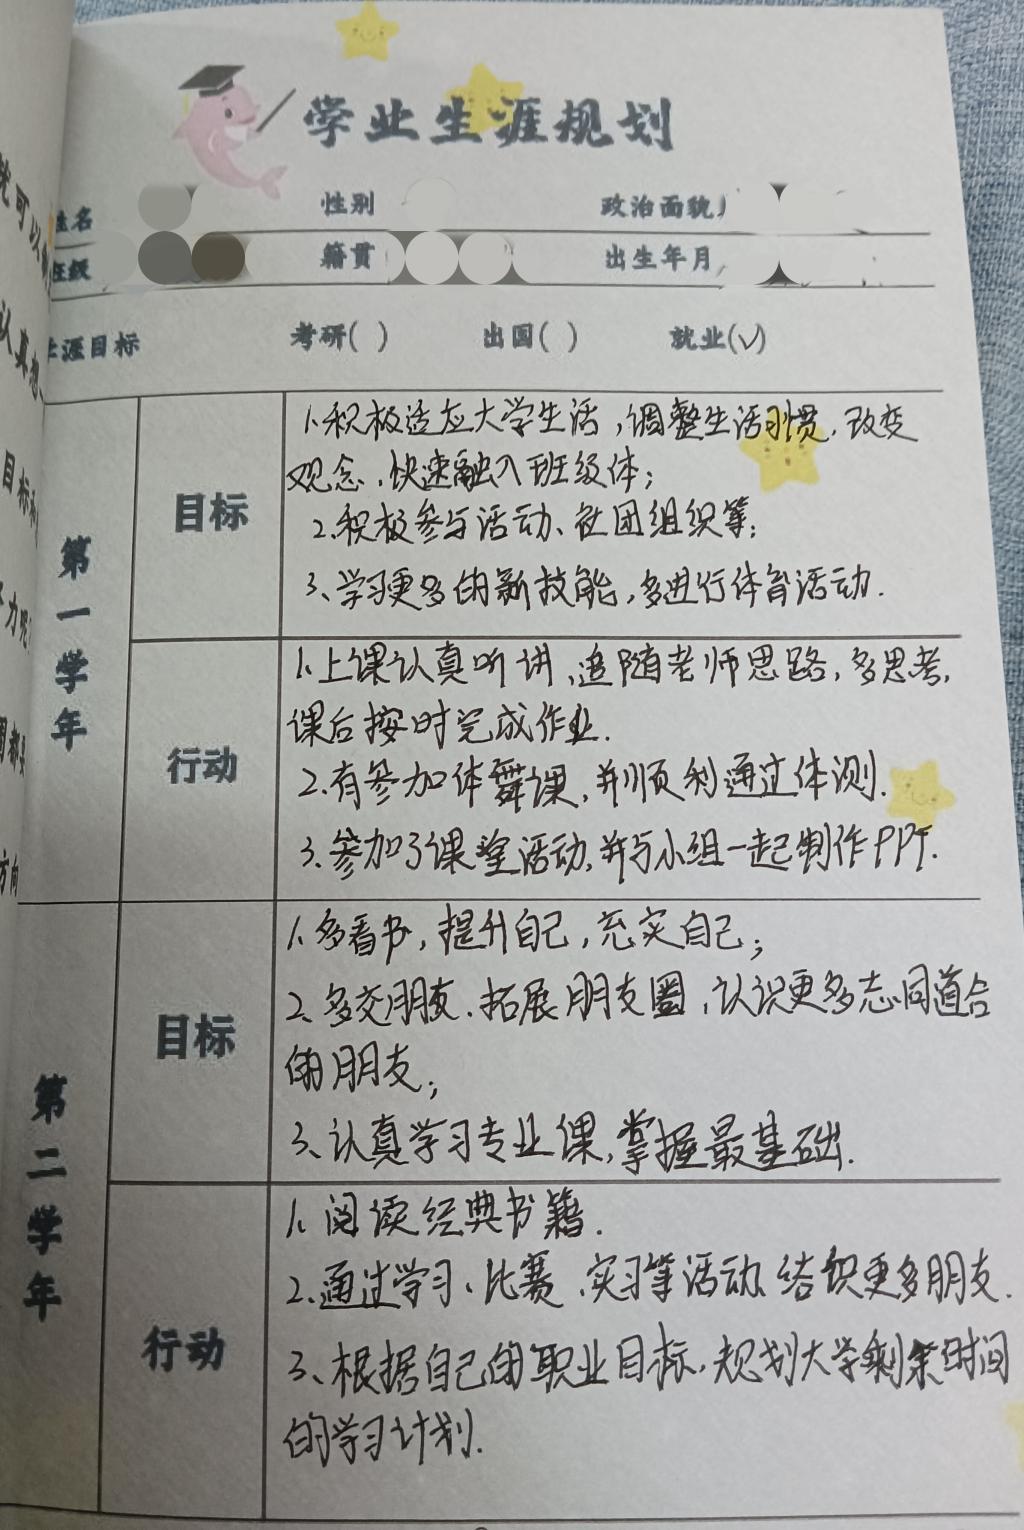 学业生涯规划
姓名 性别 政治面貌
班级 籍贯 出生年月
生涯目标 考研( ) 出国( ) 就业(√)
第一学年
目标
1.积极适应大学生活,调整生活习惯.改变
观念.快速融入班级体;
2.积极参与活动、社团组织等;
3.学习更多的新技能,多进行体育活动.
行动
1.上课认真听讲,追随老师思路,多思考,
课后按时完成作业.
2.有参加体舞课,并顺利通过体测.
3.参加了课堂活动,并与小组一起制作PPT.
第二学年
目标
1.多看书,提升自己,充实自己;
2.多交朋友.拓展朋友圈,认识更多志同道合
的朋友;
3.认真学习专业课,掌握最基础.
行动
1.阅读经典书籍.
2.通过学习、比赛、实习等活动、结识更多朋友.
3.根据自己的职业目标,规划大学剩余时间
的学习计划.
就可以
认真想
目标和
力呢
方向